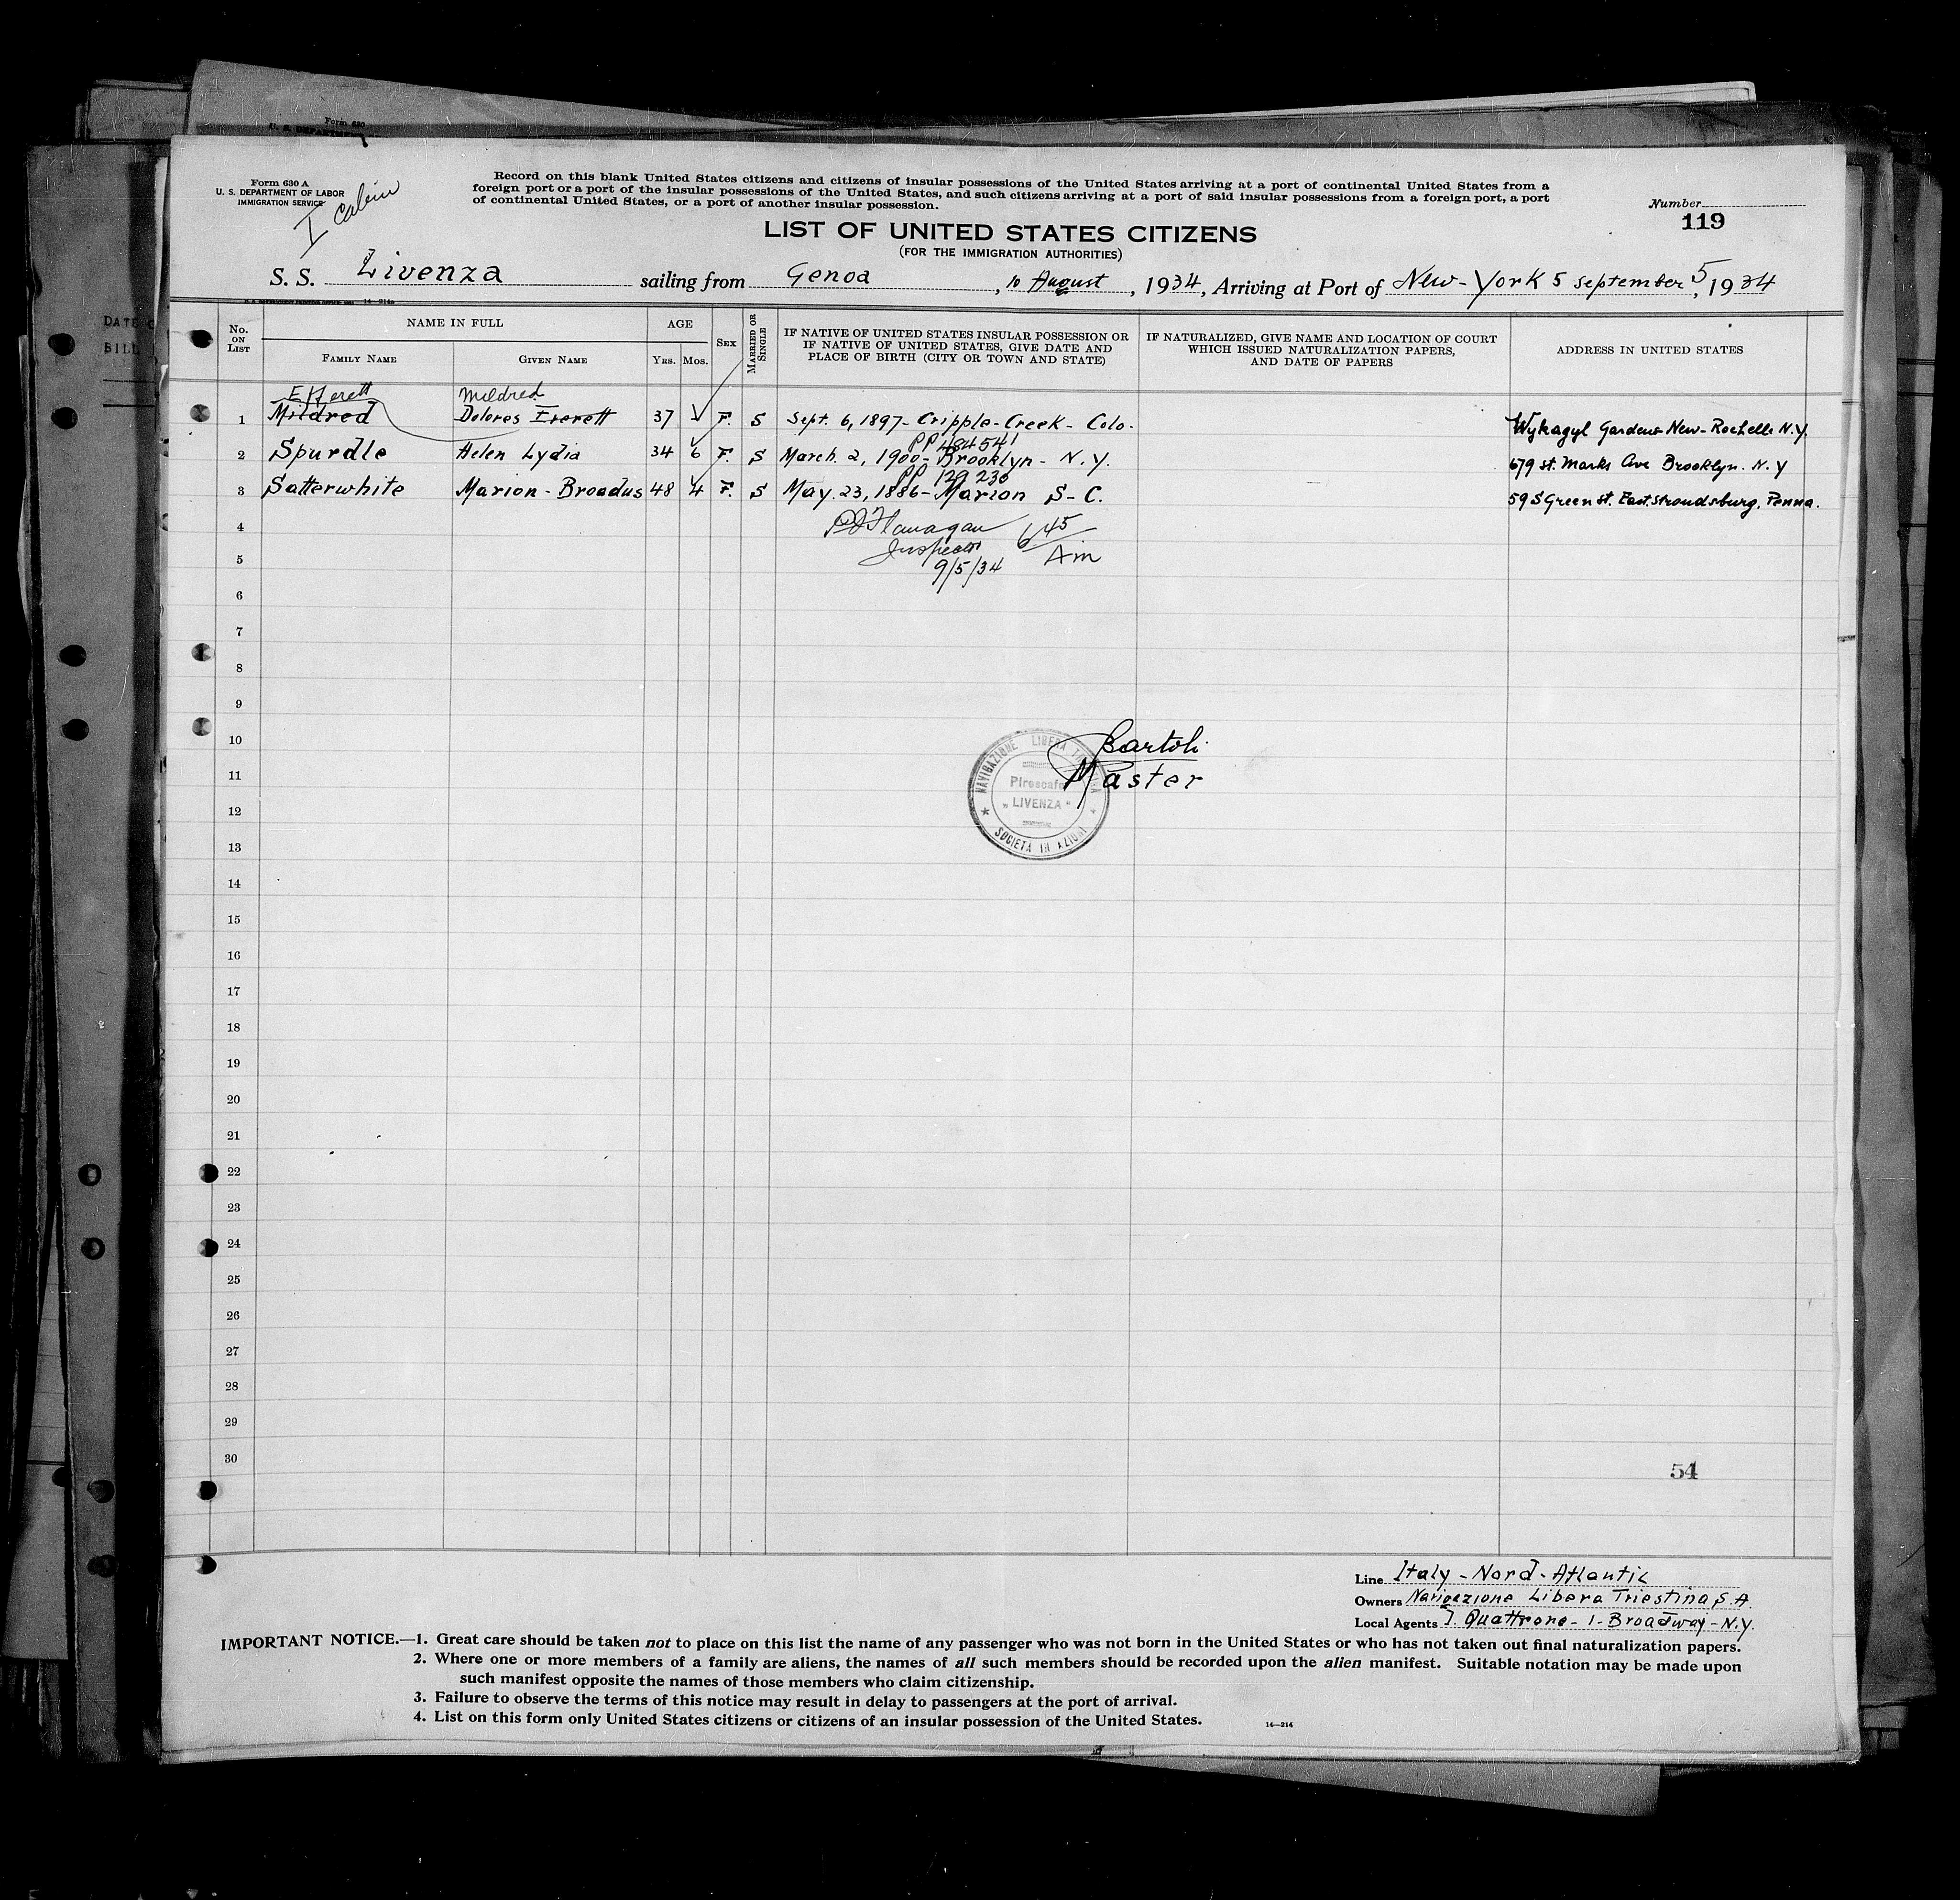 Form 630
U. S. DEPARTMENT
DATE
BILL
Form 630 A
U. S. DEPARTMENT OF LABOR
IMMIGRATION SERVICE
I cabin
Record on this blank United States citizens and citizens of insular possessions of the United States arriving at a port of continental United States from a
foreign port or a port of the insular possessions of the United States, and such citizens arriving at a port of said insular possessions from a foreign port, a port
of continental United States, or a port of another insular possession.
Number
119
LIST OF UNITED STATES CITIZENS
(FOR THE IMMIGRATION AUTHORITIES)
S. S. Livenza sailing from Genoa, 10 August, 1934, Arriving at Port of New-York 5 September 5, 1934
14—214a
No. ON LIST
NAME IN FULL
FAMILY NAME
GIVEN NAME
AGE
YRS.
MOS.
SEX
MARRIED OR SINGLE
IF NATIVE OF UNITED STATES INSULAR POSSESSION OR
IF NATIVE OF UNITED STATES, GIVE DATE AND
PLACE OF BIRTH (CITY OR TOWN AND STATE)
IF NATURALIZED, GIVE NAME AND LOCATION OF COURT
WHICH ISSUED NATURALIZATION PAPERS,
AND DATE OF PAPERS
ADDRESS IN UNITED STATES
Mildred
1 Mildred Dolores Everett 37 F. S Sept. 6, 1897- Cripple-Creek- Colo. Wykagyl Gardens New-Rochelle N.Y.
PP 484541
2 Spurdle Helen Lydia 34 6 F. S March. 2, 1900- Brooklyn- N.Y. 679 St. Marks Ave Brooklyn. N.Y
PP 129 230
3 Satterwhite Marion-Broadus 48 4 F. S May. 23, 1886- Marion S-C. 59 S Green St. East Stroudsburg, Penna.
4
Flanagan 6 45
Inspector Am
5
9/5/34
6
7
8
9
10
Bartoli
11
Master
NAVIGAZIONE LIBERA TRIESTINA
Piroscafo
"LIVENZA"
SOCIETÀ IN AZIONI
12
13
14
15
16
17
18
19
20
21
22
23
24
25
26
27
28
29
30
54
Line Italy-Nord-Atlantic
Owners Navigazione Libera Triestina S.A.
Local Agents Quattrone-1-Broadway-N.Y.
IMPORTANT NOTICE.—1. Great care should be taken not to place on this list the name of any passenger who was not born in the United States or who has not taken out final naturalization papers.
2. Where one or more members of a family are aliens, the names of all such members should be recorded upon the alien manifest. Suitable notation may be made upon
such manifest opposite the names of those members who claim citizenship.
3. Failure to observe the terms of this notice may result in delay to passengers at the port of arrival.
4. List on this form only United States citizens or citizens of an insular possession of the United States.
14—214